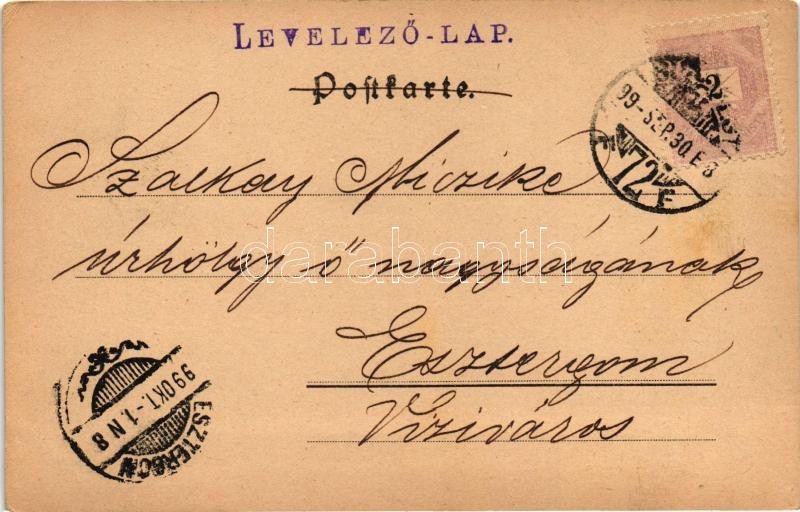 LEVELEZŐ-LAP.
Postkarte.
99-SEP.30.E8
72
Szalkay Miczike
úrhölgy ő nagyságának
darabanth
Esztergom
Viziváros
99 OKT.-1.N8
ESZTERGOM